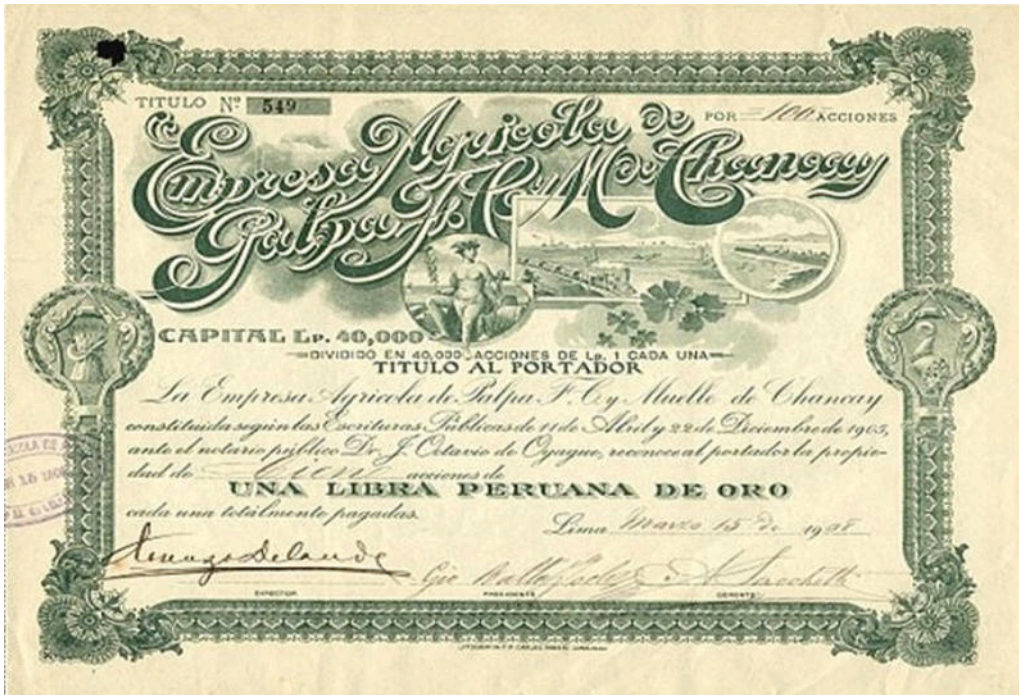 TITULO Nº 549
POR 100 ACCIONES
Empresa Agricola de
Palpa F. C. y M. de Chancay
CAPITAL Lp. 40,000
DIVIDIDO EN 40,000 ACCIONES DE Lp. 1 CADA UNA
TITULO AL PORTADOR
La Empresa Agricola de Palpa F. C. y Muelle de Chancay
constituida según las Escrituras Públicas de 11 de Abril y 22 de Diciembre de 1903,
ante el notario público Dr. J. Octavio de Oyague, reconoce al portador la propie-
dad de Cien acciones de
UNA LIBRA PERUANA DE ORO
cada una totalmente pagadas.
Lima, Marzo 15 de 1908
DIRECTOR
PRESIDENTE
GERENTE